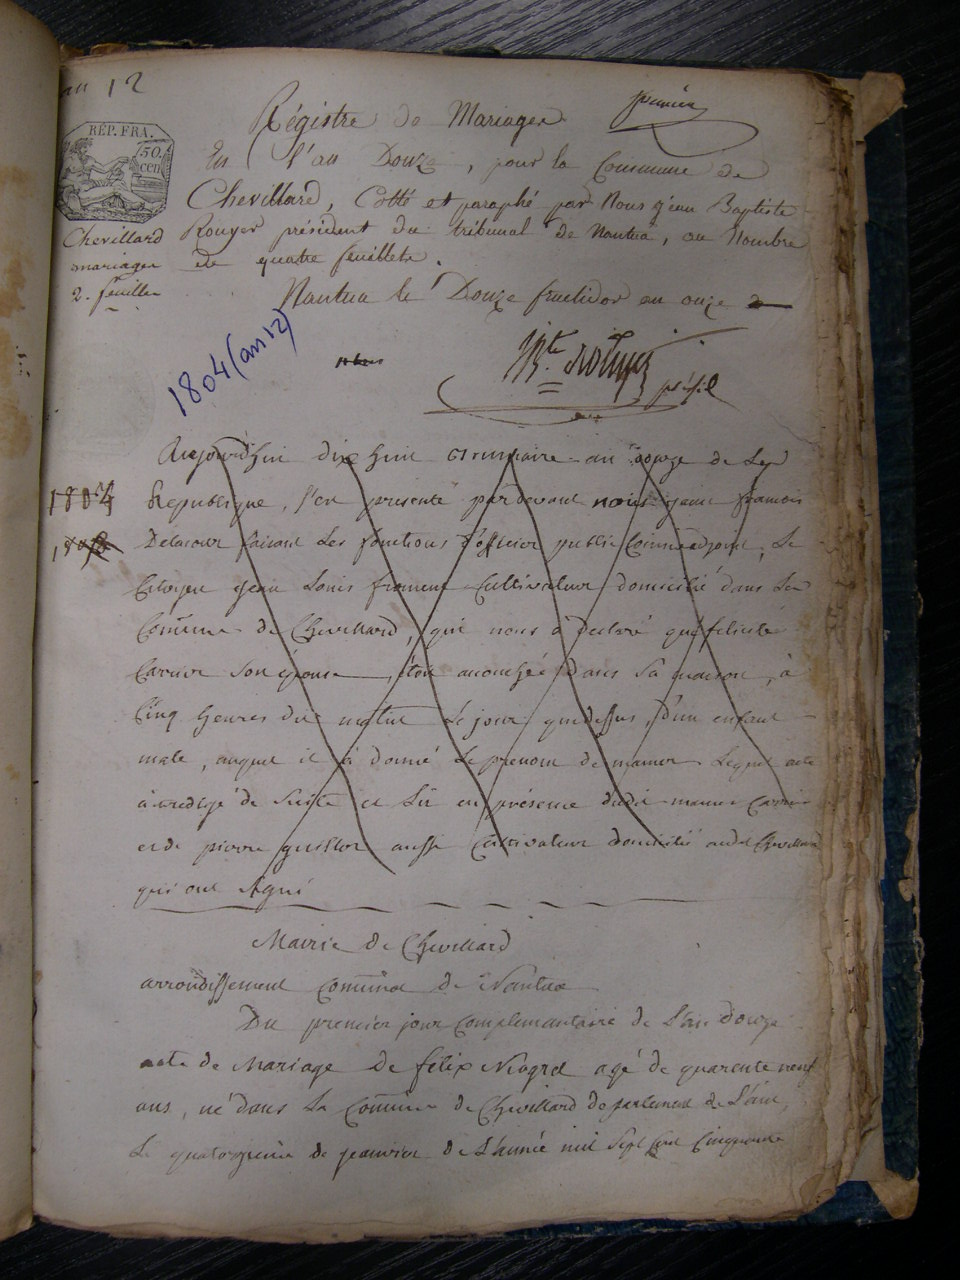 an 12
premier
RÉP. FRA.
50
cen
Régistre de Mariages
En l'an Douze, pour la Commune de
Chevillard, Cotté et paraphé par Nous Jean Baptiste
Rouyer président du tribunal de Nantua, au Nombre
de quatre feuillets.
Chevillard
mariages
2. feuilles
Nantua le Douze fructidor an onze
1804 (an 12)
Aujourd'huy dix huit brumaire an douze de la
1804
Republique, s'en presenté pardevant nous jean francois
Delacour faisant Les fonctions d'officier public Comme adjoint, Le
Citoyen jean Louis froment Cultivateur domicilié dans La
Commune de Chevillard, qui nous a declaré que felicité
Carrier son épouse étoit accouchée dans sa maison, à
Cinq heures du matin Le jour que dessus, d'un enfant
male, auquel il à donné Le prenom de mamer Lequel acte
à été redigé de suite et Lu en présence dudit mamer Carrier
et de pierre aussi Cultivateur domicilié audit Chevillard
qui ont signé
Mairie de Chevillard
arrondissement Communal de Nantua
Du premier jour complementaire de L'an douze
acte de Mariage de felix agé de quarente neuf
ans, né dans La Commune de Chevillard departement de L'ain,
Le quatorzieme de jeanvier de L'année mil sept cent Cinquante